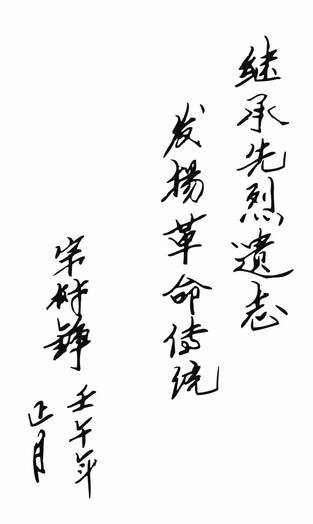 继承先烈遗志
发揚革命传统
壬午年
正月